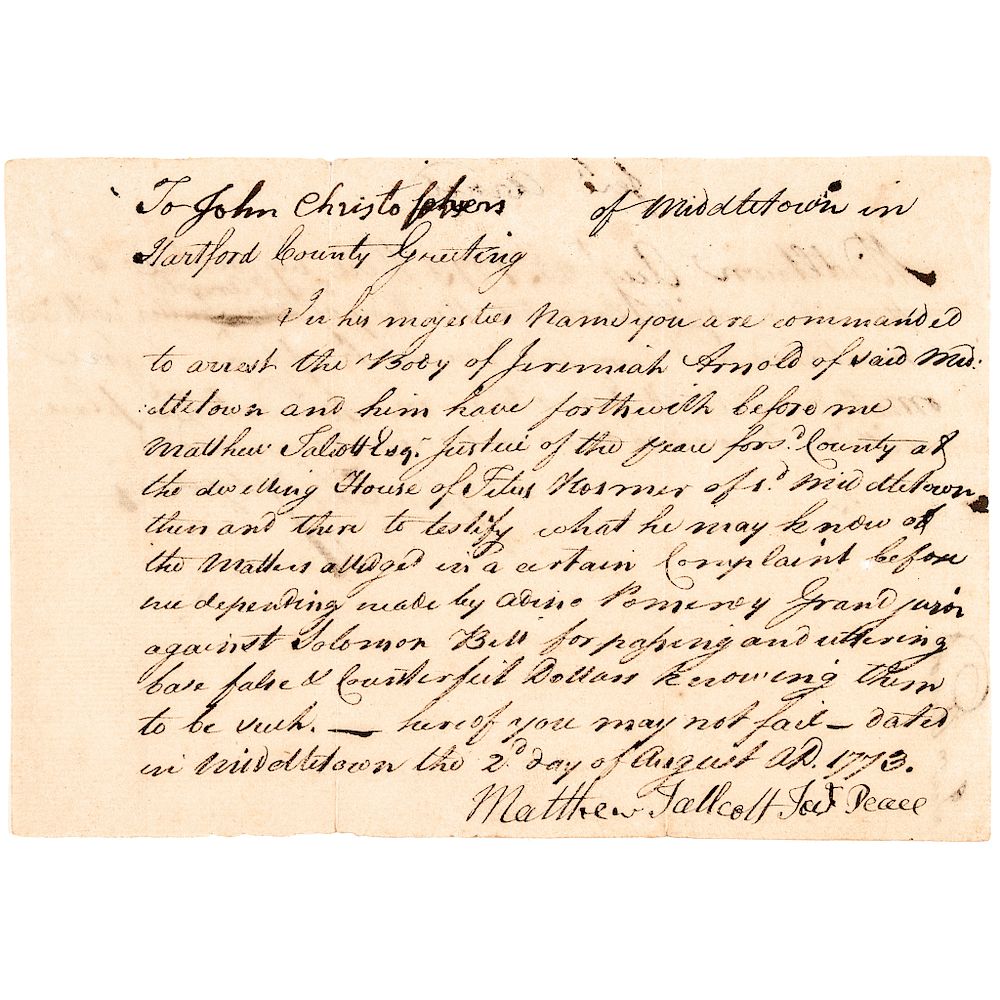 To John Christophers of Middletown in
Hartford County Greeting
In his majesties Name you are commanded
to arrest the Body of Jeremiah Arnold of said Mid:
:dletown and him have forthwith before me
Matthew Talcott Esqr. Justice of the peace for sd. County at
the dwelling House of Titus Hosmer of sd. Middletown
then and there to testify what he may know of
the Matters alledged in a certain Complaint before
me depending made by Adino Pomeroy Grand juror
against Solomon Bill for passing and uttering
base false & Counterfeit Dollars knowing them
to be such. — hereof you may not fail — dated
in Middletown the 2d day of August AD. 1773.
Matthew Tallcott Just Peace